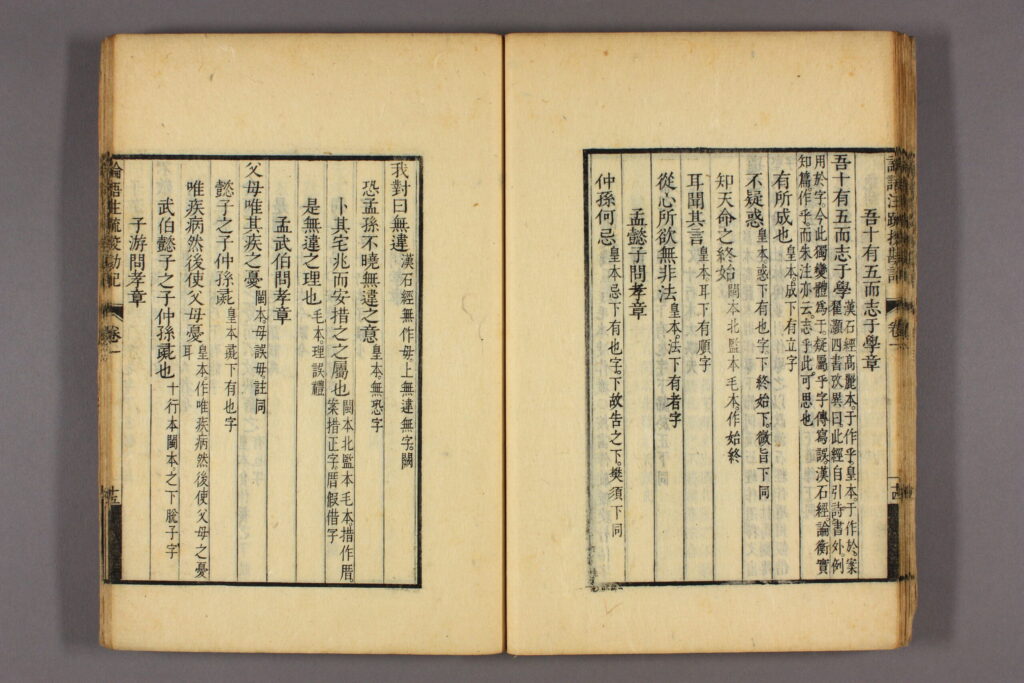 吾十有五而志于學章
吾十有五而志于學漢石經高麗本于作乎皇本于作於案翟灝四書攷異曰此經自引詩書外例
用於字今此獨變體爲于疑屬乎字傳寫誤漢石經論衡實知篇作乎而朱注亦云志乎此可思也
有所成也皇本成下有立字
不疑惑皇本惑下有也字下終始下微旨下同
知天命之終始閩本北監本毛本作始終
耳聞其言皇本耳下有順字
從心所欲無非法皇本法下有者字
孟懿子問孝章
仲孫何忌皇本忌下有也字下故告之下樊須下同
我對曰無違漢石經無作毋上無違無字闕
恐孟孫不曉無違之意皇本無恐字
卜其宅兆而安措之之屬也閩本北監本毛本措作厝案措正字厝假借字
是無違之理也毛本理誤禮
孟武伯問孝章
父母唯其疾之憂閩本母誤毋註同
懿子之子仲孫彘皇本彘下有也字
唯疾病然後使父母憂皇本作唯疾病然後使父母之憂耳
武伯懿子之子仲孫彘也十行本閩本之下脫子字
子游問孝章
論語注疏挍勘記 卷一 十五